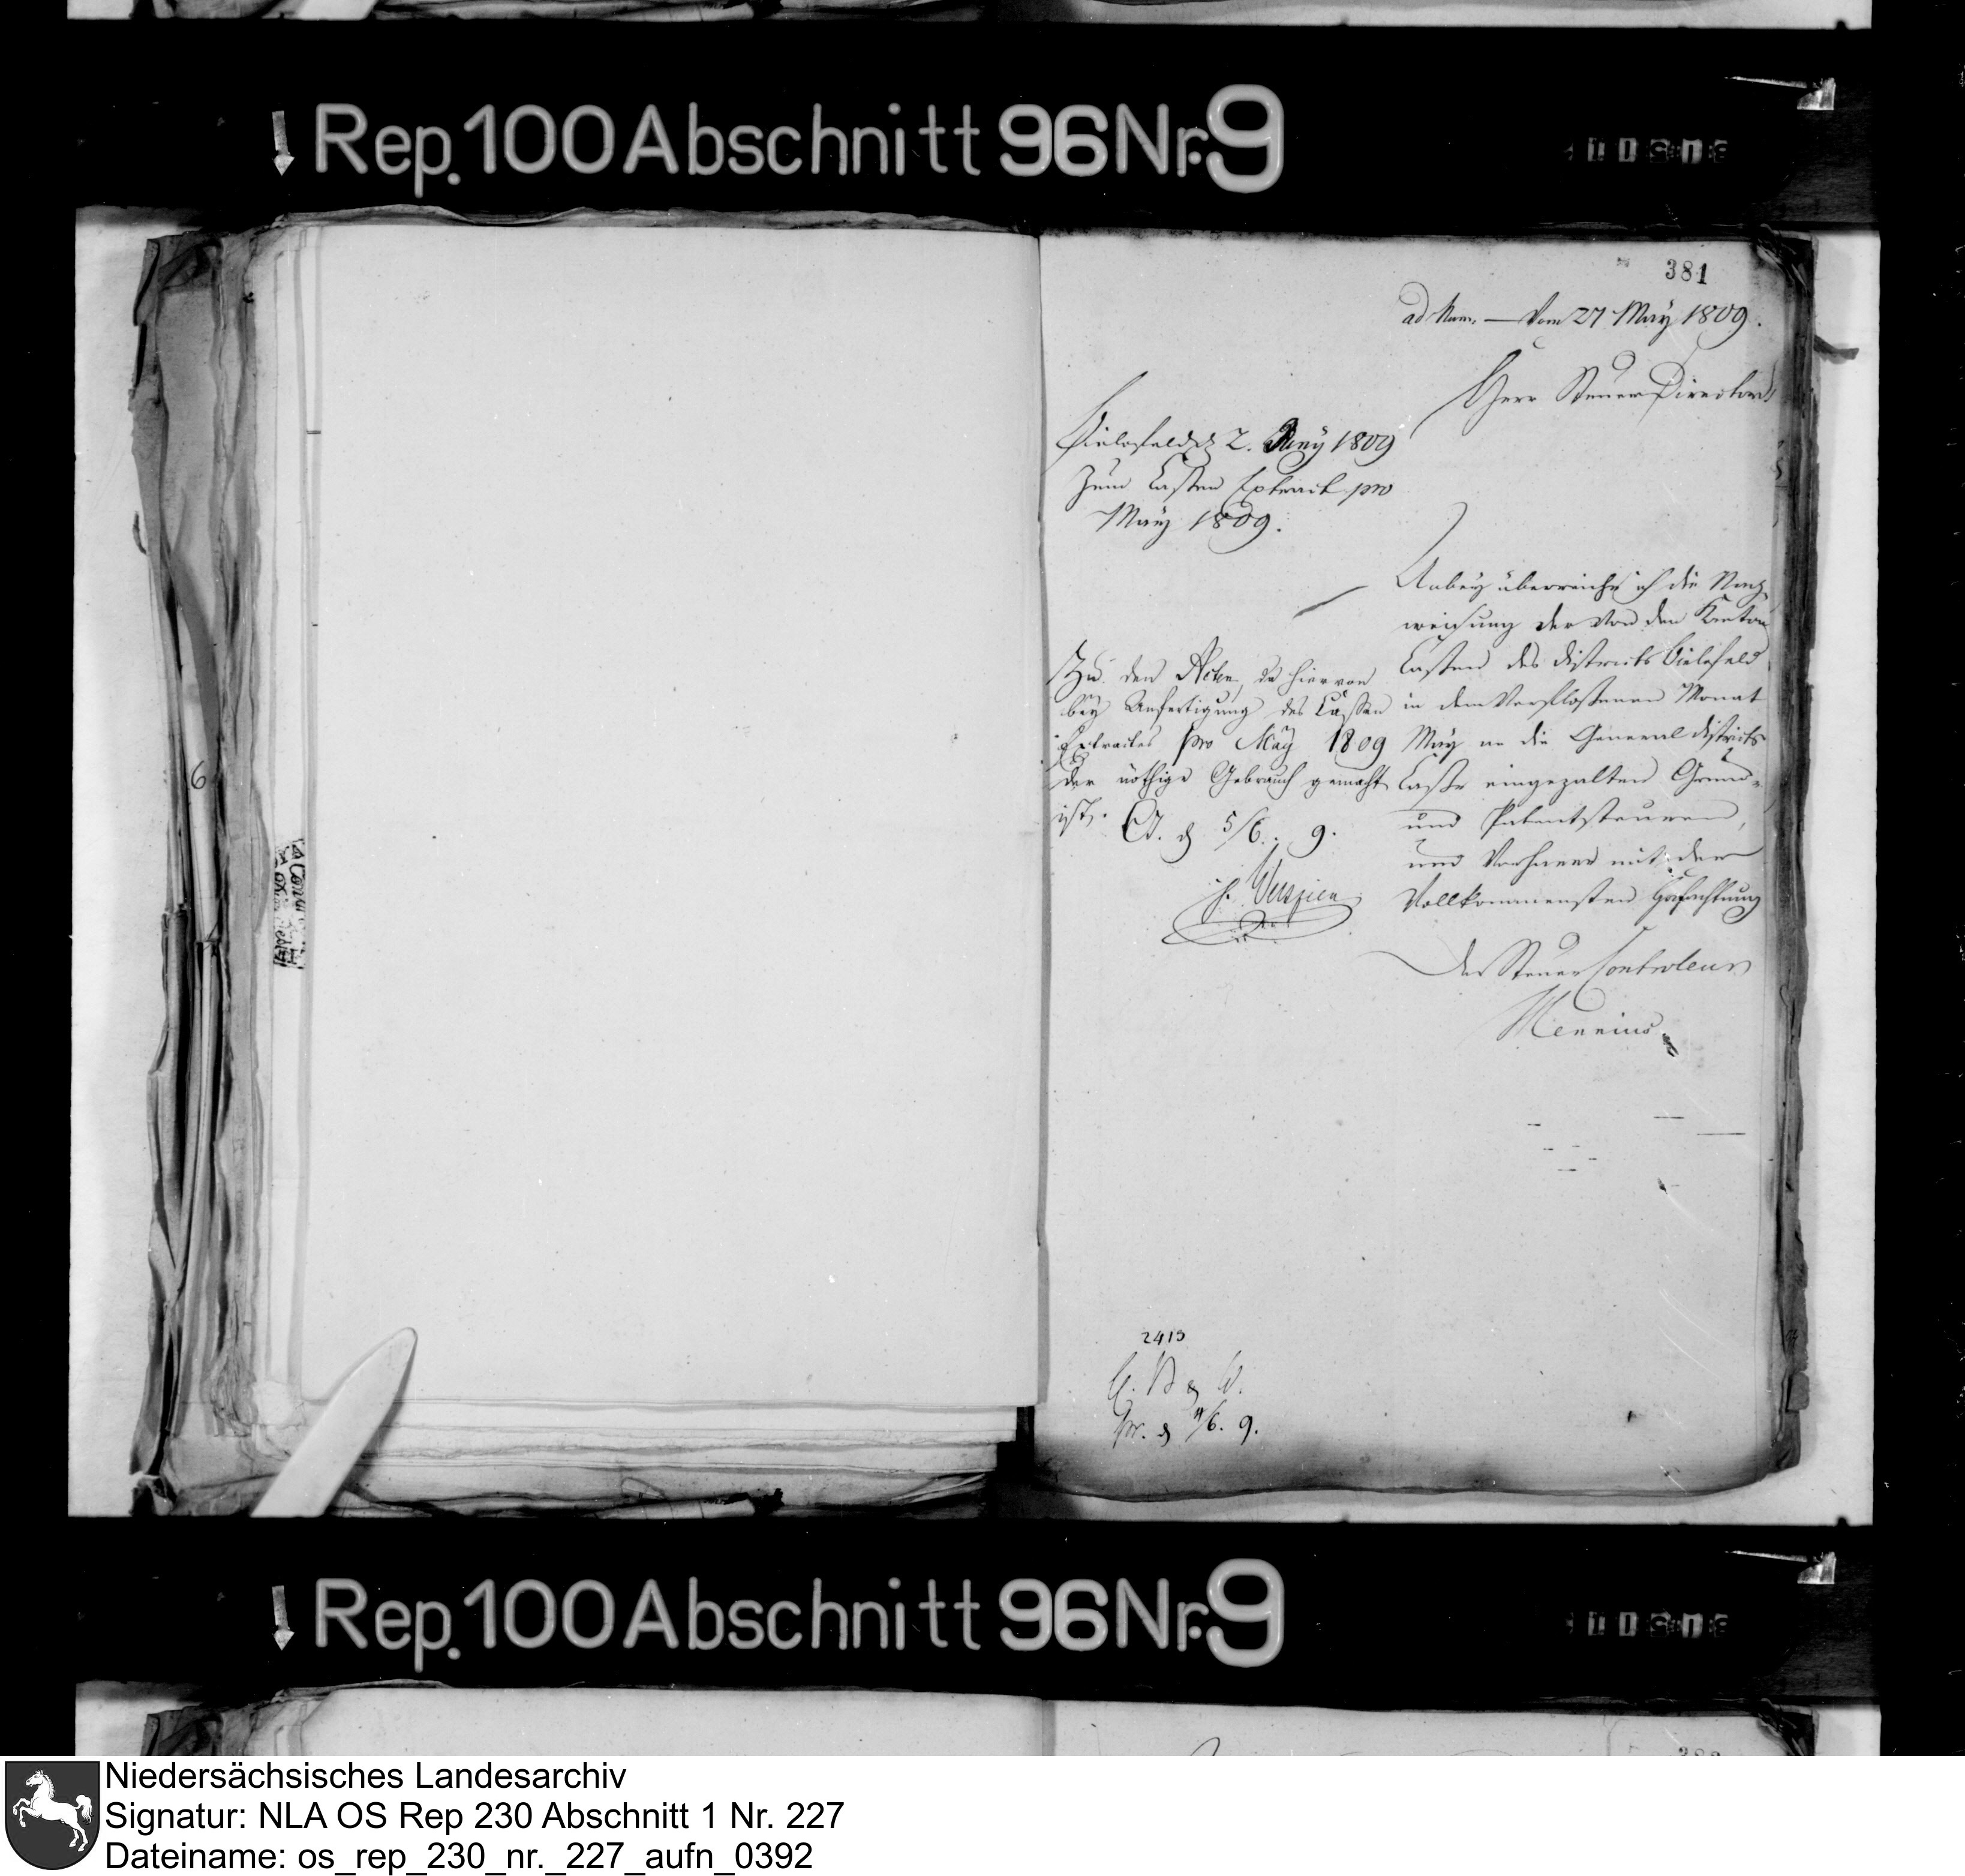 Rep. 100 Abschnitt 96 Nr. 9
381
ad Num. — Vom 27 May 1809.
Herr Steuer Director!
Bielefeld d. 2. Juny 1809
Zum Cassen Extract pro
May 1809.
Anbey überreiche ich die Nach
weisung der von den Kanton
Cassen des Districts Bielefeld
in dem verflossenen Monat
May an die General Districts
Casse eingezalten Grund-
und Patentsteuren,
und verharre mit der
Vollkommensten Hochachtung
Der Steuer Controleur
Mennius
Zu den Acten, da hiervon
bey Anfertigung des Cassen
Extractes pro May 1809
der nöthige Gebrauch gemacht
ist. 5/6. 9.
6
2413
pr. d 4/6. 9.
Rep. 100 Abschnitt 96 Nr. 9
Niedersächsisches Landesarchiv
Signatur: NLA OS Rep 230 Abschnitt 1 Nr. 227
Dateiname: os_rep_230_nr._227_aufn_0392